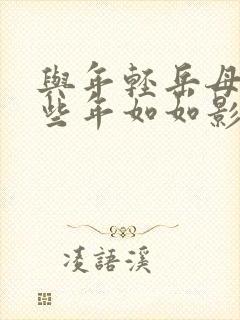 與年輕岳母
些年如如影
凌語溪